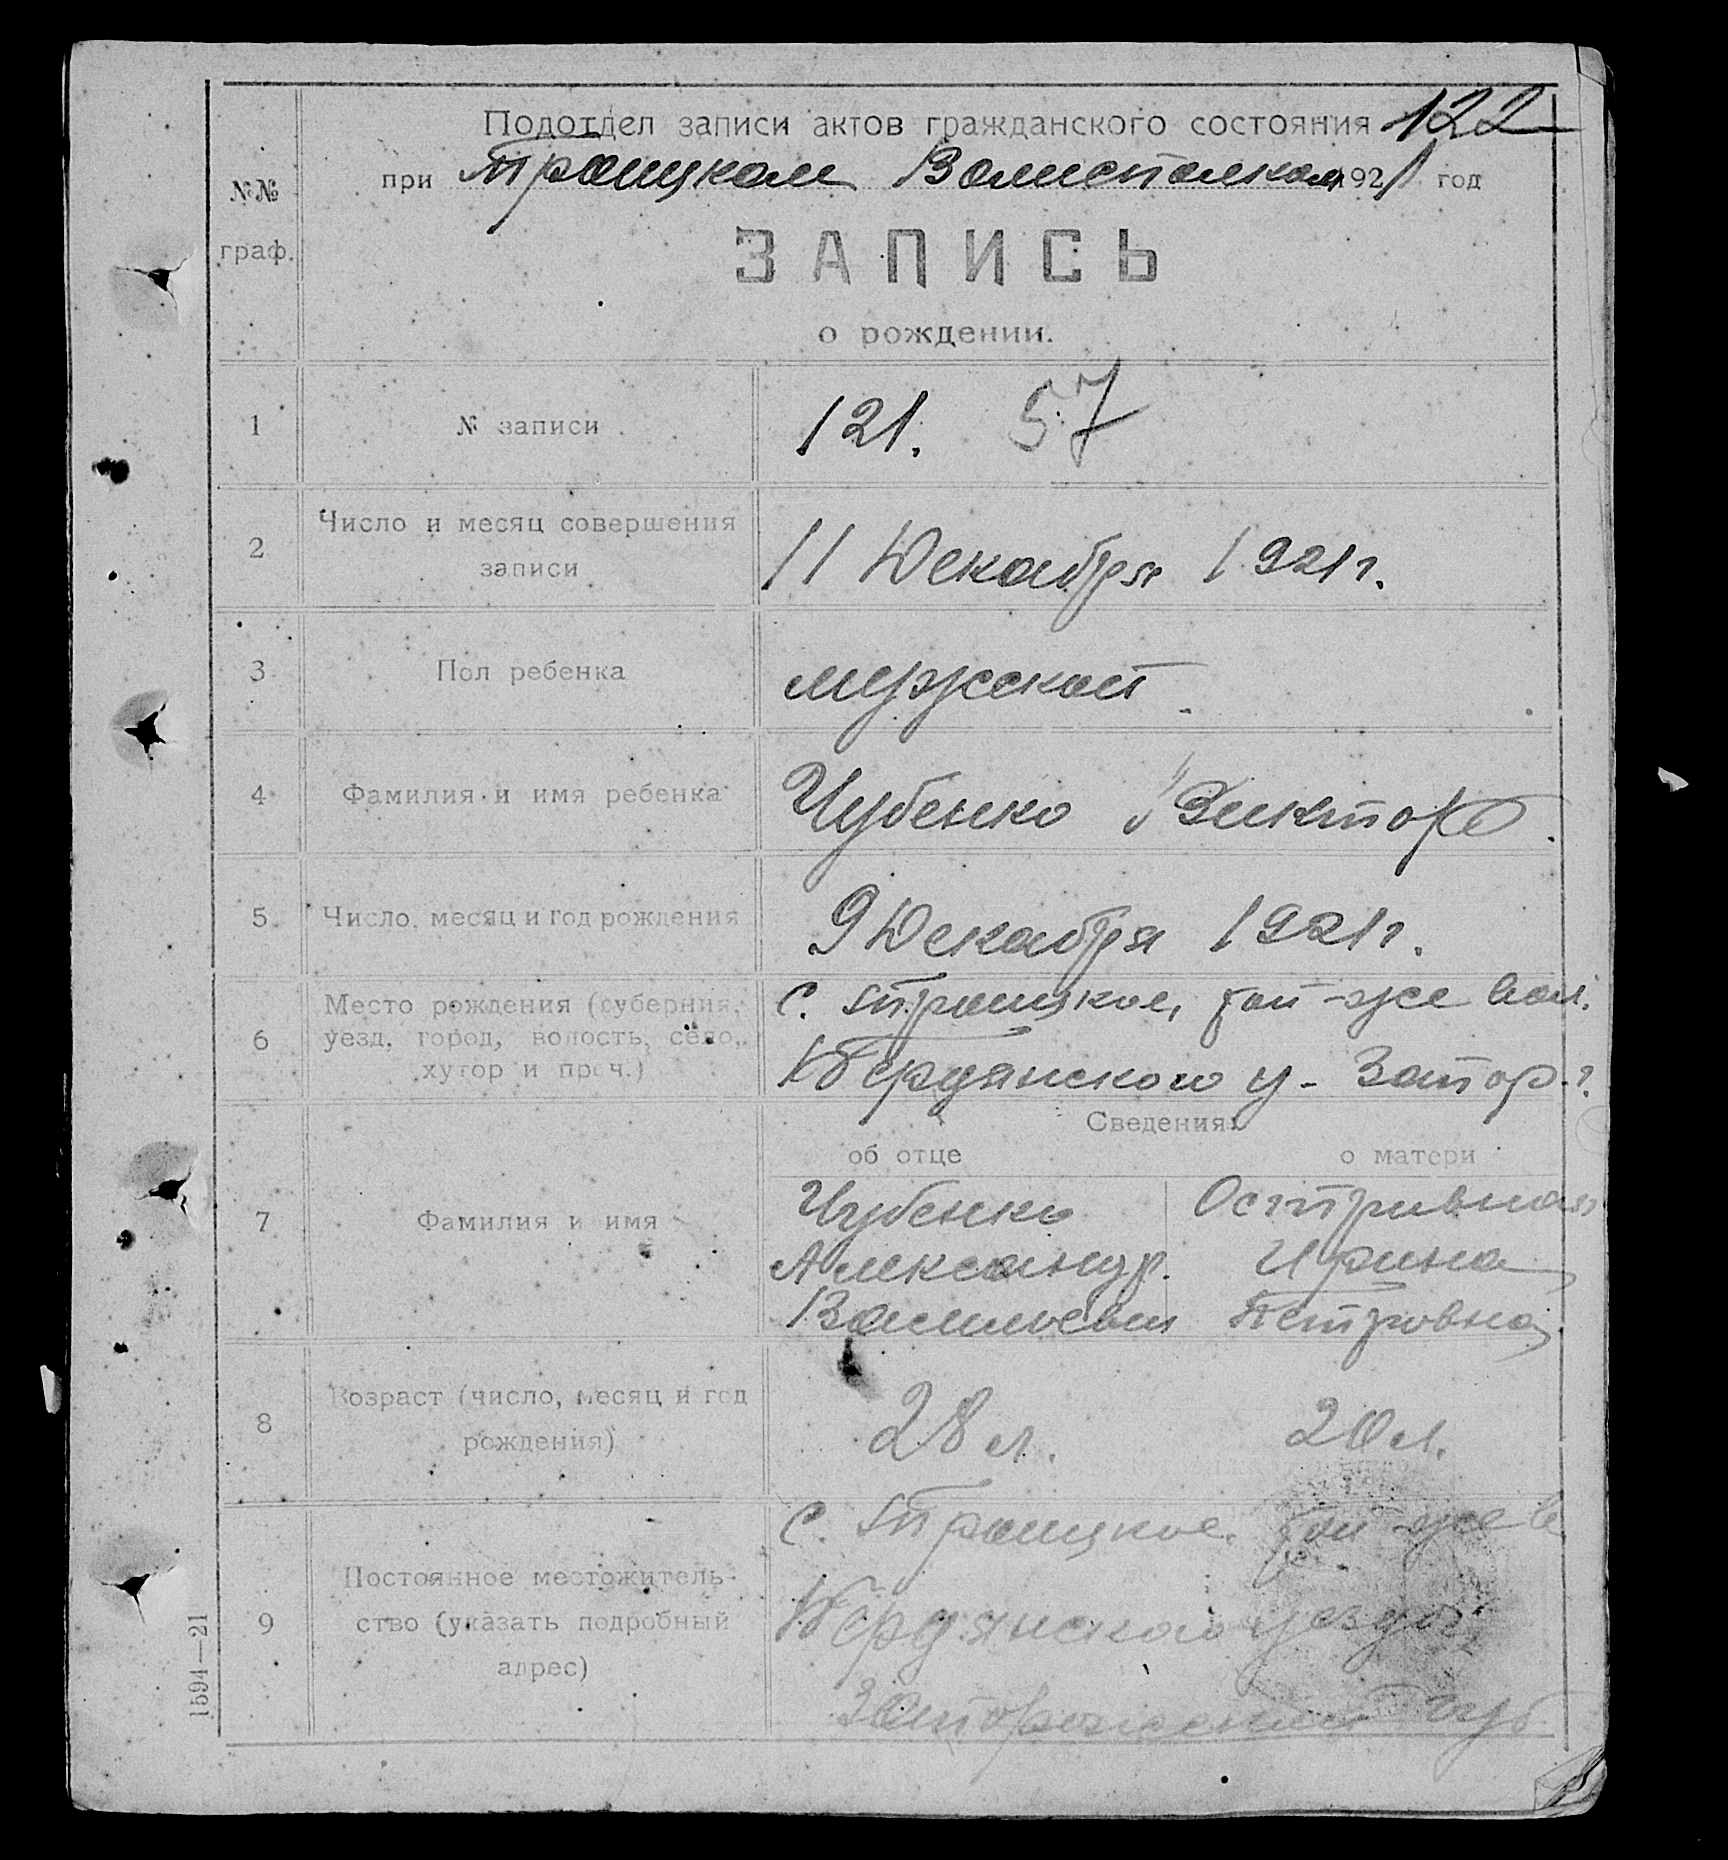 122
Подотдел записи актов гражданского состояния
при Троицком Волисполкоме 1921 год
№№
граф.
ЗАПИСЬ
о рождении.
1 № записи 121. 57
2 Число и месяц совершения
записи
11 Декабря 1921 г.
3 Пол ребенка мужской
4 Фамилия и имя ребенка Чубенко Виктор.
5 Число, месяц и год рождения 9 Декабря 1921 г.
6 Место рождения (губерния,
уезд, город, волость, село,
хутор и проч.)
с. Троицкое, той-же вол.
Бердянского у. Запор. г.
Сведения:
об отце о матери
7 Фамилия и имя
Чубенко Остривная
Александр. Ирина
Васильевич Петровна
8 Возраст (число, месяц и год
рождения)
28 л. 20 л.
9 Постоянное местожитель-
ство (указать подробный
адрес)
с. Троицкое, той-же в.
Бердянского уезда
Запорожской губ
1594—21